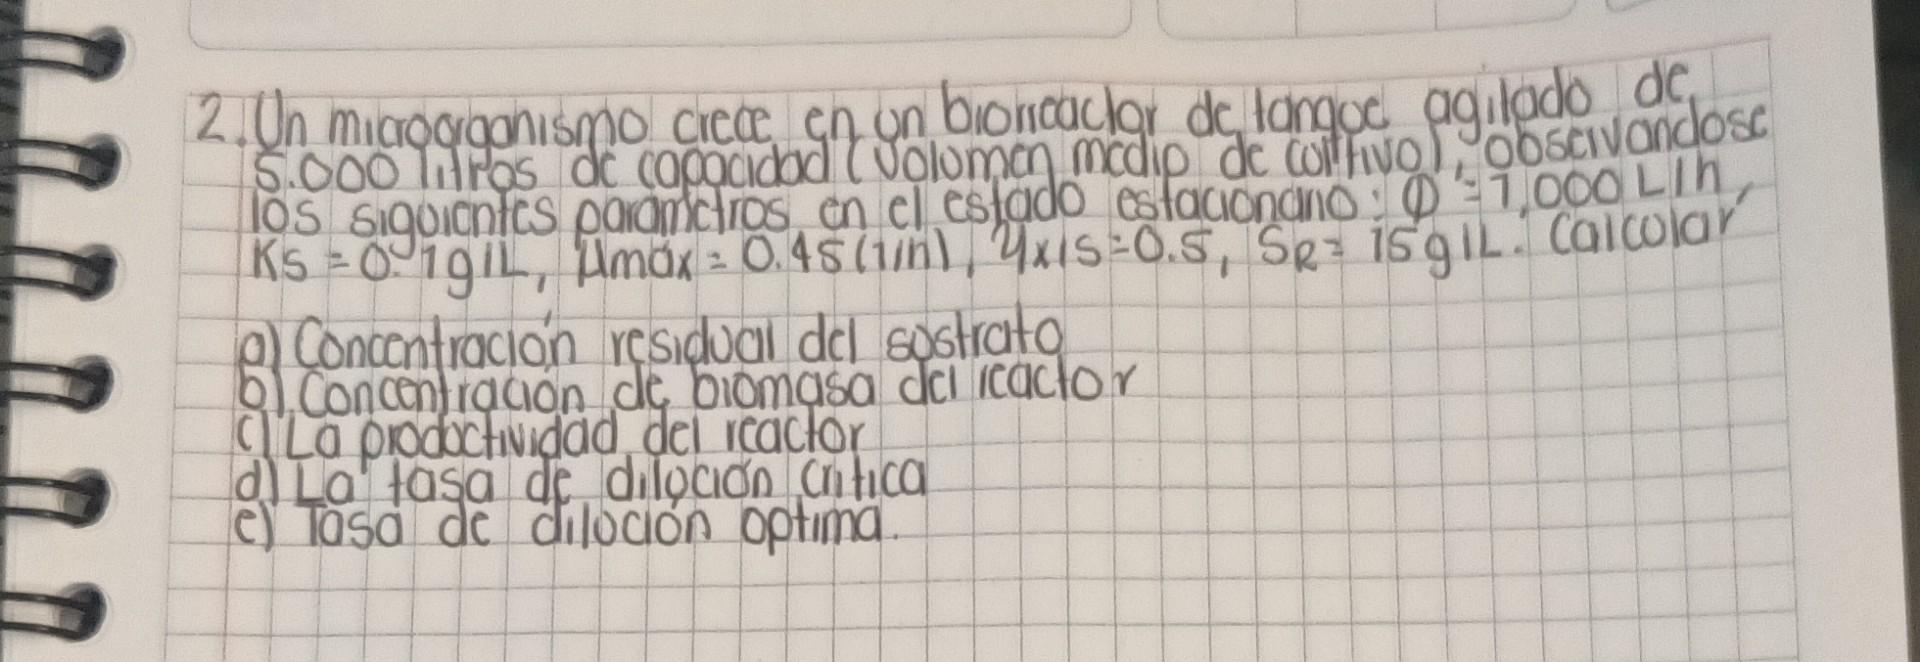 2. Un microorganismo crece en un biorreactor de tanque agitado de
5.000 litros de capacidad (Volumen medio de cultivo), observandose
los siguientes parametros en el estado estacionario: Φ = 1,000 L/h,
Ks = 0.1 g/L, μmáx = 0.45 (1/h), Yx/s = 0.5, SR = 15 g/L. Calcular
a) Concentración residual del sustrato
b) Concentración de biomasa del reactor
c) La productividad del reactor
d) La tasa de dilución critica
e) Tasa de dilución optima.